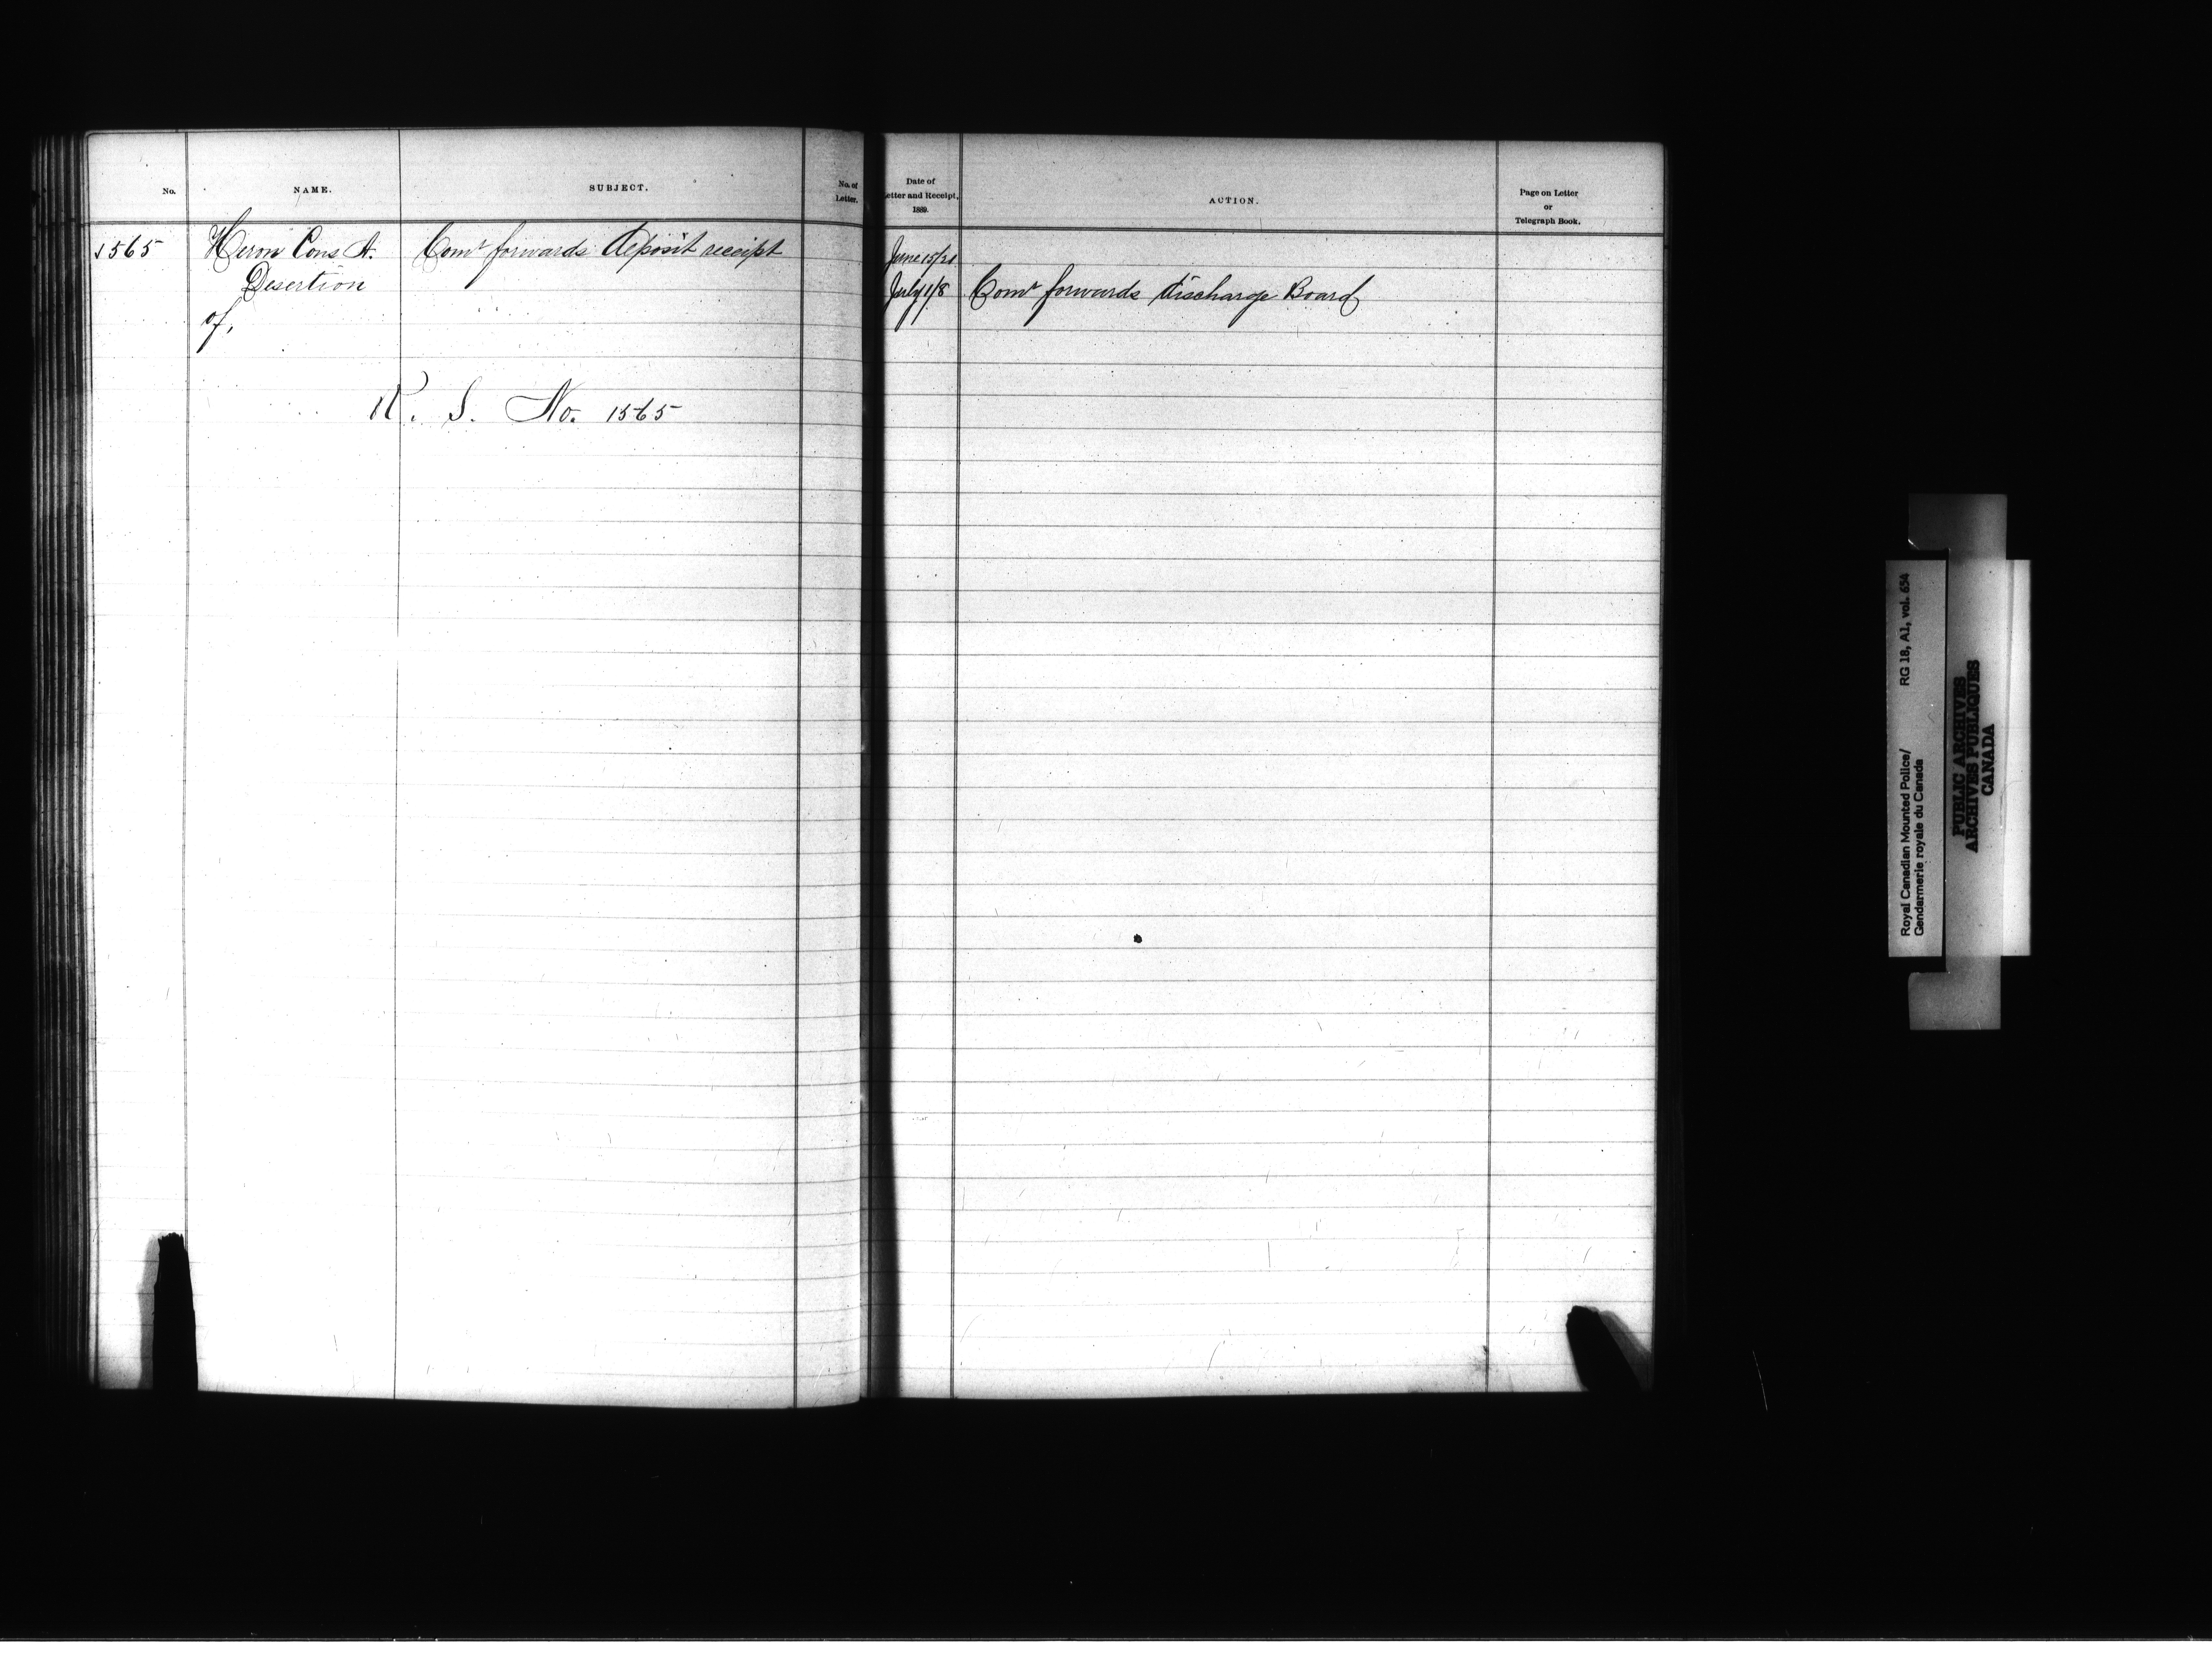 No.
NAME.
SUBJECT.
No. of
Letter.
1565
Heron Cons A.
Comr forwards deposit receipt
Desertion
of,
R. S. No. 1565
Date of
Letter and Receipt,
1889.
ACTION.
Page on Letter
or
Telegraph Book.
June 15/21
July 1/8 Comr forwards discharge Board
Royal Canadian Mounted Police/ RG 18, A1, vol. 654
Gendarmerie royale du Canada
PUBLIC ARCHIVES
ARCHIVES PUBLIQUES
CANADA